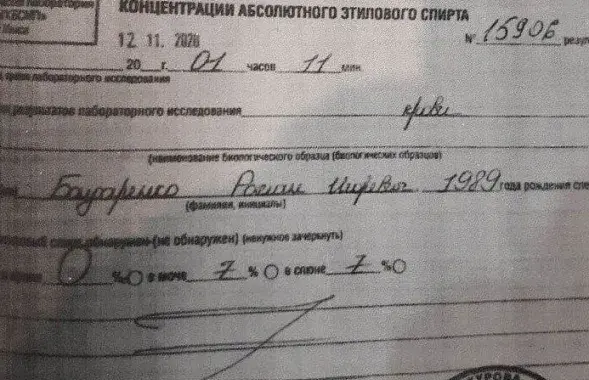 лаборатория
КОНЦЕНТРАЦИИ АБСОЛЮТНОГО ЭТИЛОВОГО СПИРТА
г. Минска
12 11. 2020
№ 15906
20 г. 01 часов 11 мин.
лабораторного исследования
результатов лабораторного исследования крови
(наименование биологического образца (биологических образцов)
Бондаренко Роман Игоревич 1989 года рождения
(фамилия, инициалы)
спирт обнаружен (не обнаружен) (ненужное зачеркнуть)
0 %О в моче Z %О в слюне Z %О